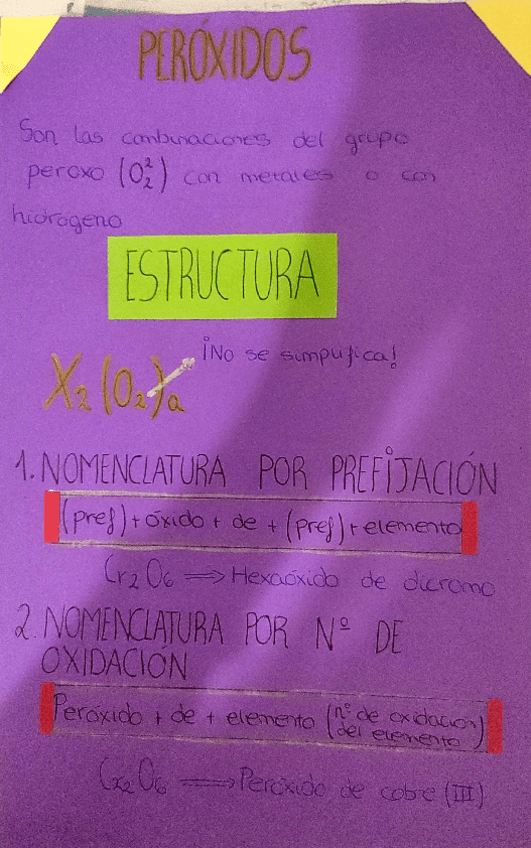 PERÓXIDOS
Son las combinaciones del grupo
peroxo (O₂²) con metales o con
hidrogeno
ESTRUCTURA
¡No se simplifica!
X₂(O₂)a
1. NOMENCLATURA POR PREFIJACIÓN
(pref) + óxido + de + (pref) + elemento
Cr₂O₆ ⟹ Hexaóxido de dicromo
2. NOMENCLATURA POR Nº DE
OXIDACIÓN
Peróxido + de + elemento (nº de oxidacion
del elemento)
O₆ ⟹ Peróxido de cobre (III)